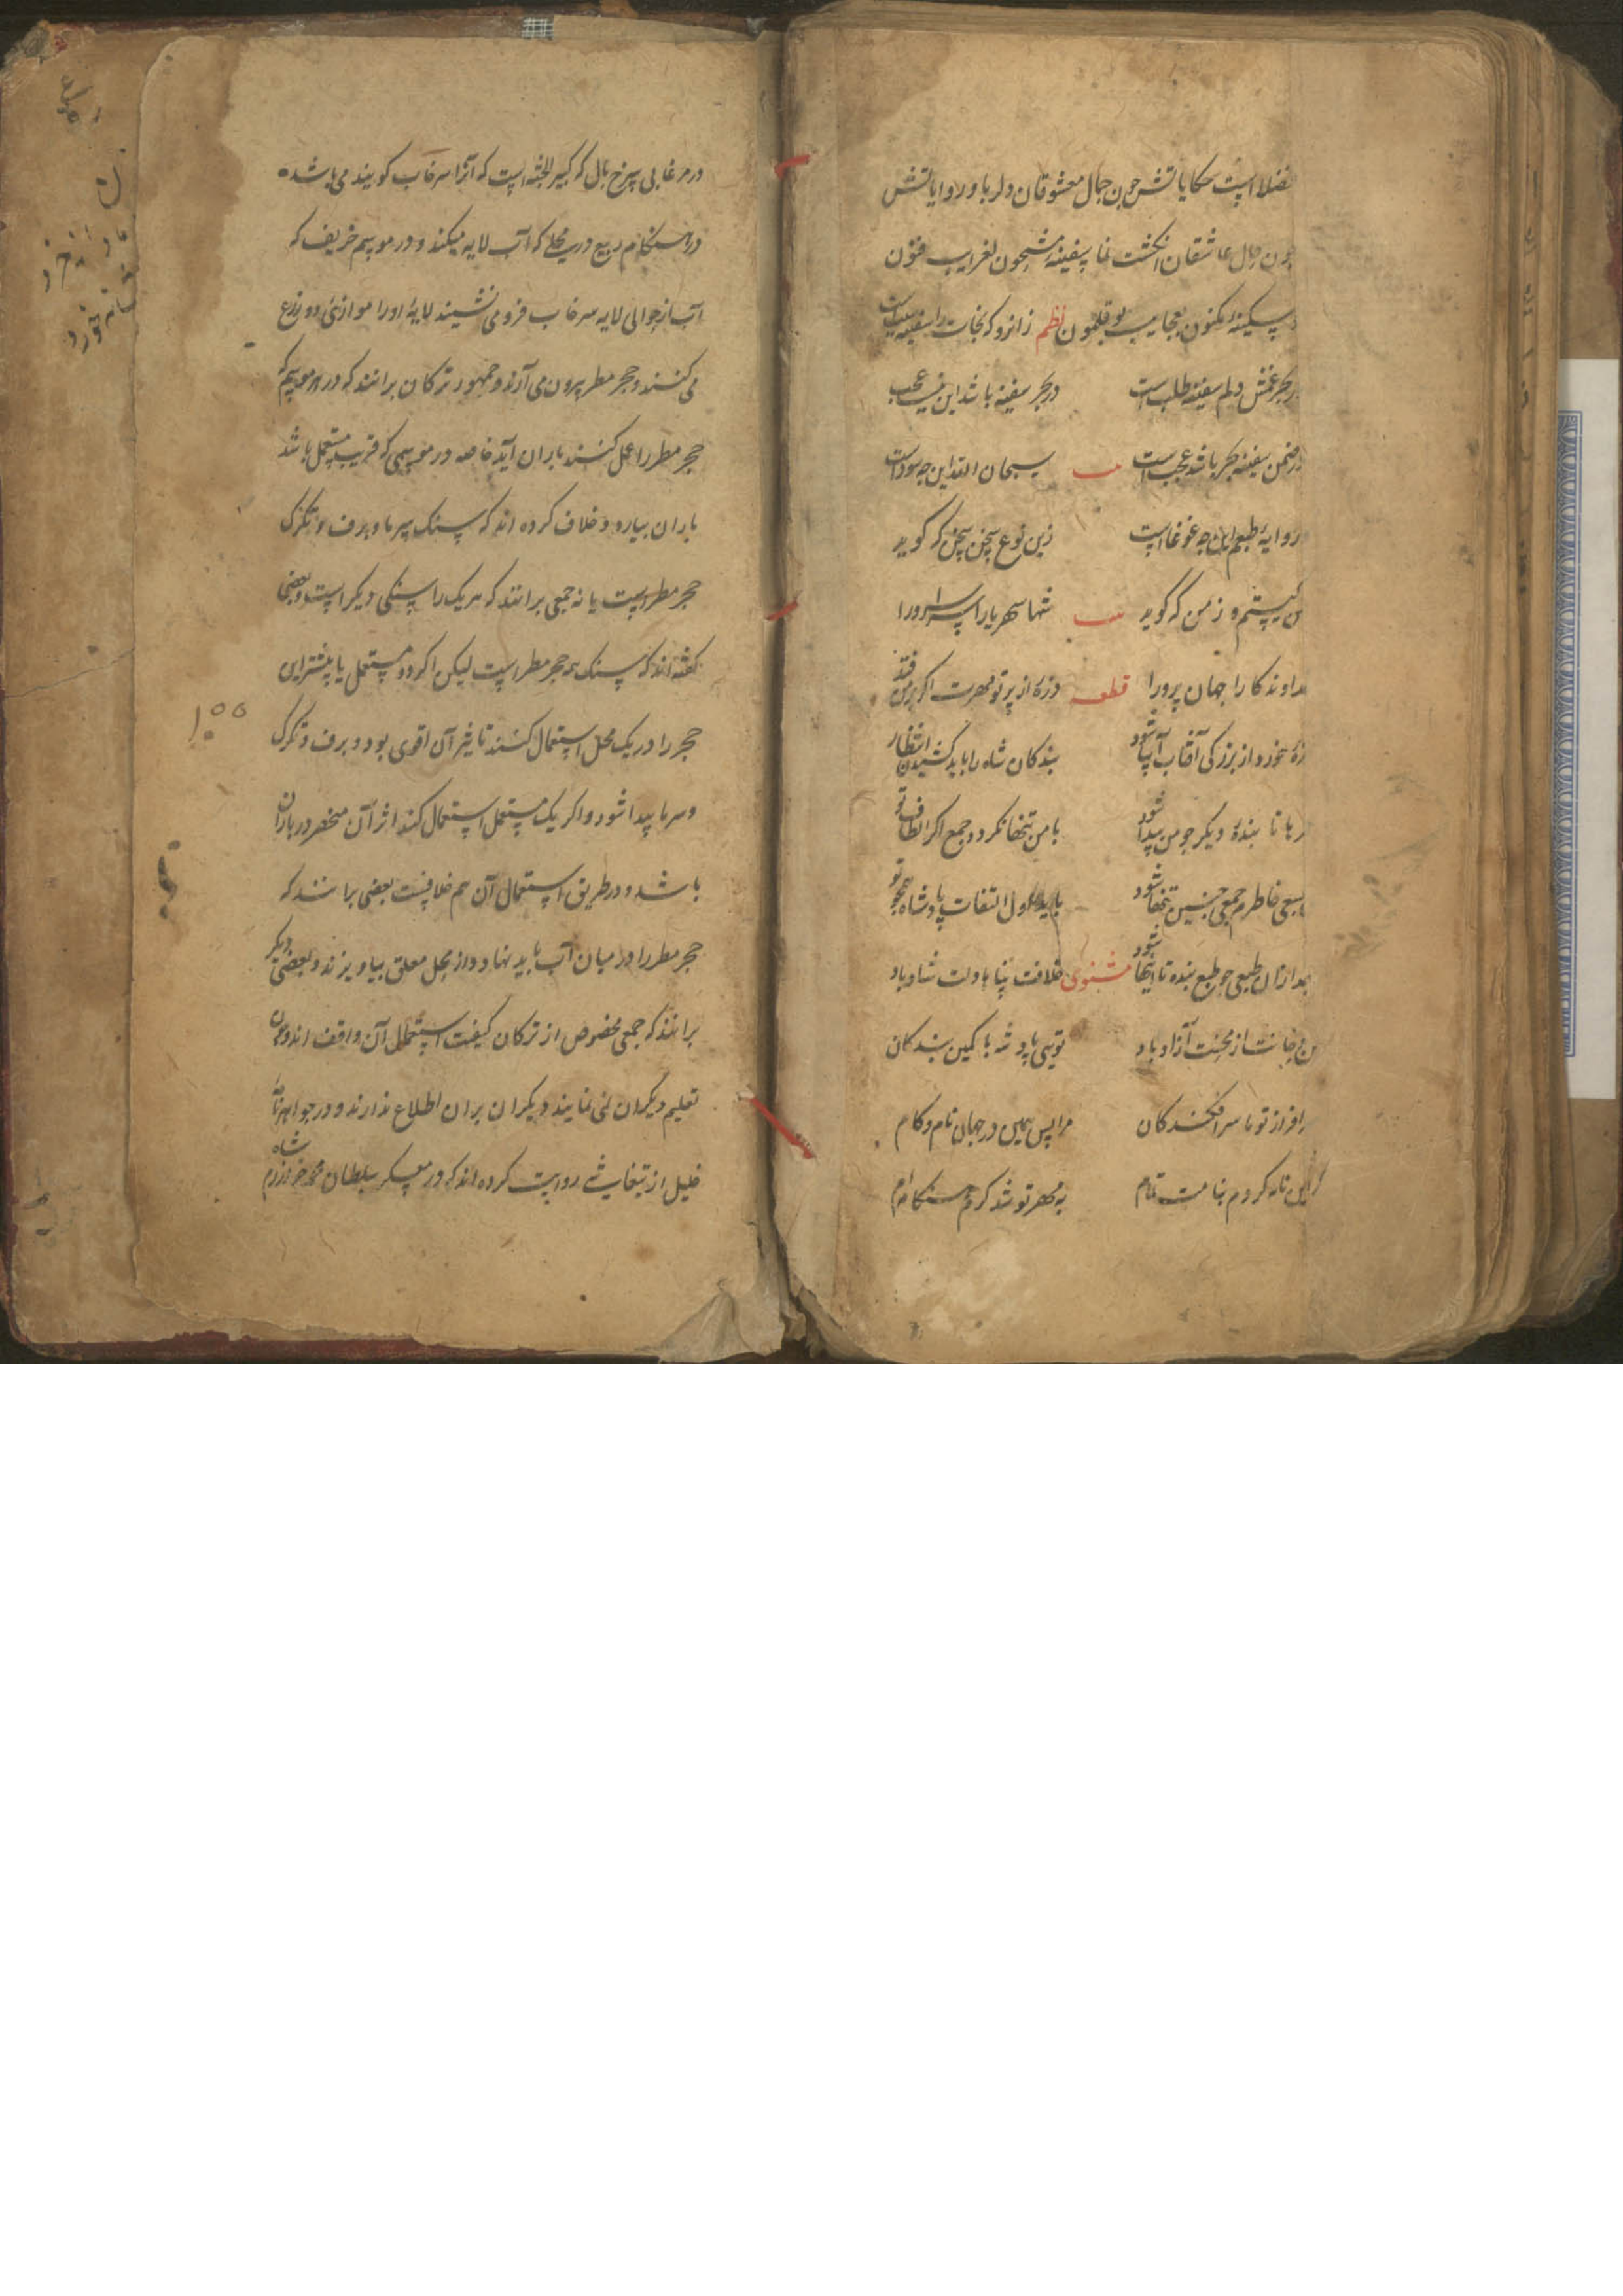 فضلا است حکایاتش چون جمال معشوقان دلربا و روایاتش
چون حال عاشقان انکشت نما سفینه مشحون لغرایب فنون
سکینه مکنون بعجایب بوقلمون نظم زانرو که نجات را سفینه سببست
در بحر غمش دلم سفینه طلب است در بحر سفینه باشد این نیست عجب
در ضمن سفینه بحر باشد عجب است سبحان الله این چه سوداست
در وایه طبعم این چه غوغا است زین نوع سخن سخن که کوید
من نیستم و ز من که کوید شها شهریارا سرا سرورا
خداوند کارا جهان پرورا قطعه ذره از پرتو مهرت اکر بر من فتد
ذره خورد از بزرکی آفتاب آسا شود بندکان شاه را باید کشیدن انتظار
تا بنده دیکر چو من پیدا شود با من تنها نکردد جمع اکر الطاف تو
خاطر جمعی چنین تنها شود باید اول التفات پادشاه همچو تو
بعد ازان طبعی چو طبع بنده تا اینها شود مثنوی خلافت پناها دلت شاد باد
جانت از محنت آزاد باد تویی پادشه با کمین بندکان
سرافراز تو ما سرافکندکان مرا بس همین در جهان نام و کام
که این نامه کردم بنامت تمام به مهر تو شد کرم هنکامه‌ام
در مرغابی سرخ بال که کبیر الجثه است که آنرا سرخاب کویند می باشد
در هنکام ربیع در محلی که آب لایه میکند و در موسم خریف که
آب از حوالی لایه سرخاب فرو می نشیند لایه او را موازی دو ذرع
می کنند و حجر مطر بیرون می آرند و جمهور ترکان برانند که در هر موسم که
حجر مطر را عمل کنند باران آید خاصه در موسمی که قریب مستعمل باشد
باران ببارد و خلاف کرده اند که سنک سرما و برف و تکرک
حجر مطر است یا نه جمعی برانند که هر یک را سنکی دیکر است و بعضی
کفته اند که سنک همه حجر مطر است لیکن اکر دو مستعمل یا بیشتر این
حجر را در یک محل استعمال کنند تاثیر آن اقوی بود و برف و تکرک
و سرما پیدا شود و اکر یک مستعمل استعمال کند اثر آن منحصر در باران
باشد و در طریق استعمال آن هم خلافست بعضی برانند که
حجر مطر را در میان آب باید نهاد و از محل معلق بیاویزند و بعضی دیکر
برانند که جمعی مخصوص از ترکان کیفیت استعمال آن واقف اند و چون
تعلیم دیکران نمی نمایند دیکران بران اطلاع ندارند و در جواهرنامه
خلیل از روایت کرده اند که در معسکر سلطان محمد خوارزم شاه
۱۰۰